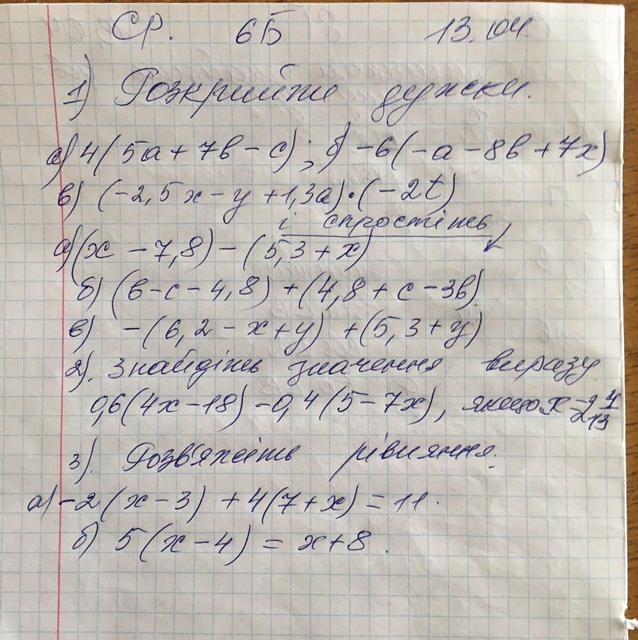 СР. 6Б 13.04
1) Розкрийте дужки.
а) 4(5a + 7b - c); б) -6(-a - 8b + 7x)
в) (-2,5x - y + 1,3a)·(-2t)
і спростіть
а) (x - 7,8) - (5,3 + x)
б) (b - c - 4,8) + (4,8 + c - 3b)
в) -(6,2 - x + y) + (5,3 + y)
2). Знайдіть значення виразу
0,6(4x - 18) - 0,4(5 - 7x), якщо x =
3). Розв'яжіть рівняння.
а) -2(x - 3) + 4(7 + x) = 11.
б) 5(x - 4) = x + 8.